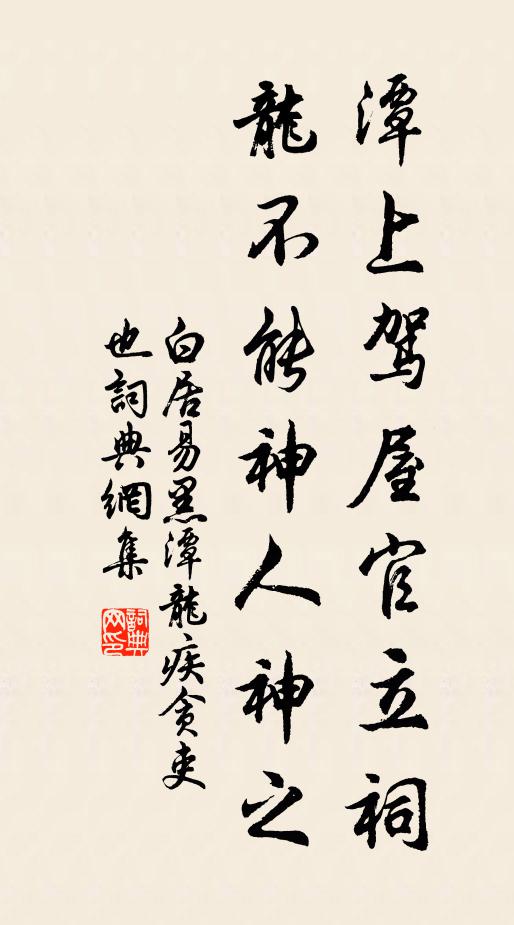 潭上駕屋官立祠
龍不能神人神之
白居易黑潭龍疾貪吏
也詞典網集
詞典網印